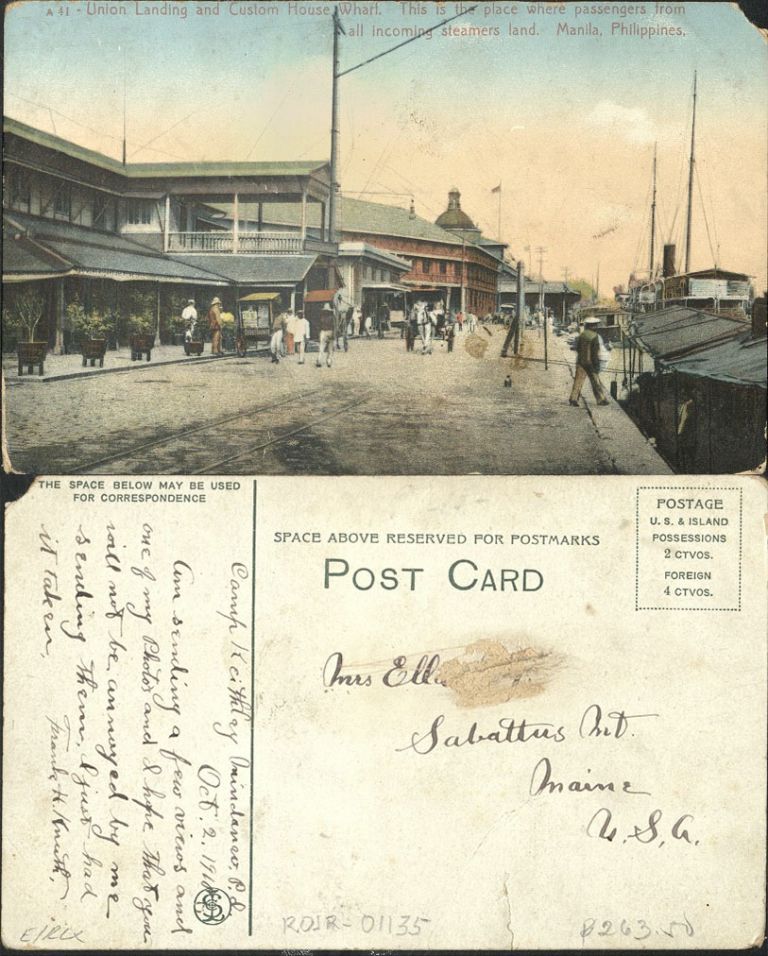 A 41 - Union Landing and Custom House Wharf. This is the place where passengers from
all incoming steamers land. Manila, Philippines.
THE SPACE BELOW MAY BE USED
FOR CORRESPONDENCE
Camp Keithley Mindanao, P.I.
Oct. 2, 191
Am sending a few views and
one of my Photos and I hope that you
will not be annoyed by me
sending them, I just had
it taken,
Frank H.
SPACE ABOVE RESERVED FOR POSTMARKS
POST CARD
POSTAGE
U. S. & ISLAND
POSSESSIONS
2 CTVOS.
FOREIGN
4 CTVOS.
Mrs Ella
Sabattus
Maine
U.S.A.
RDJR-01135